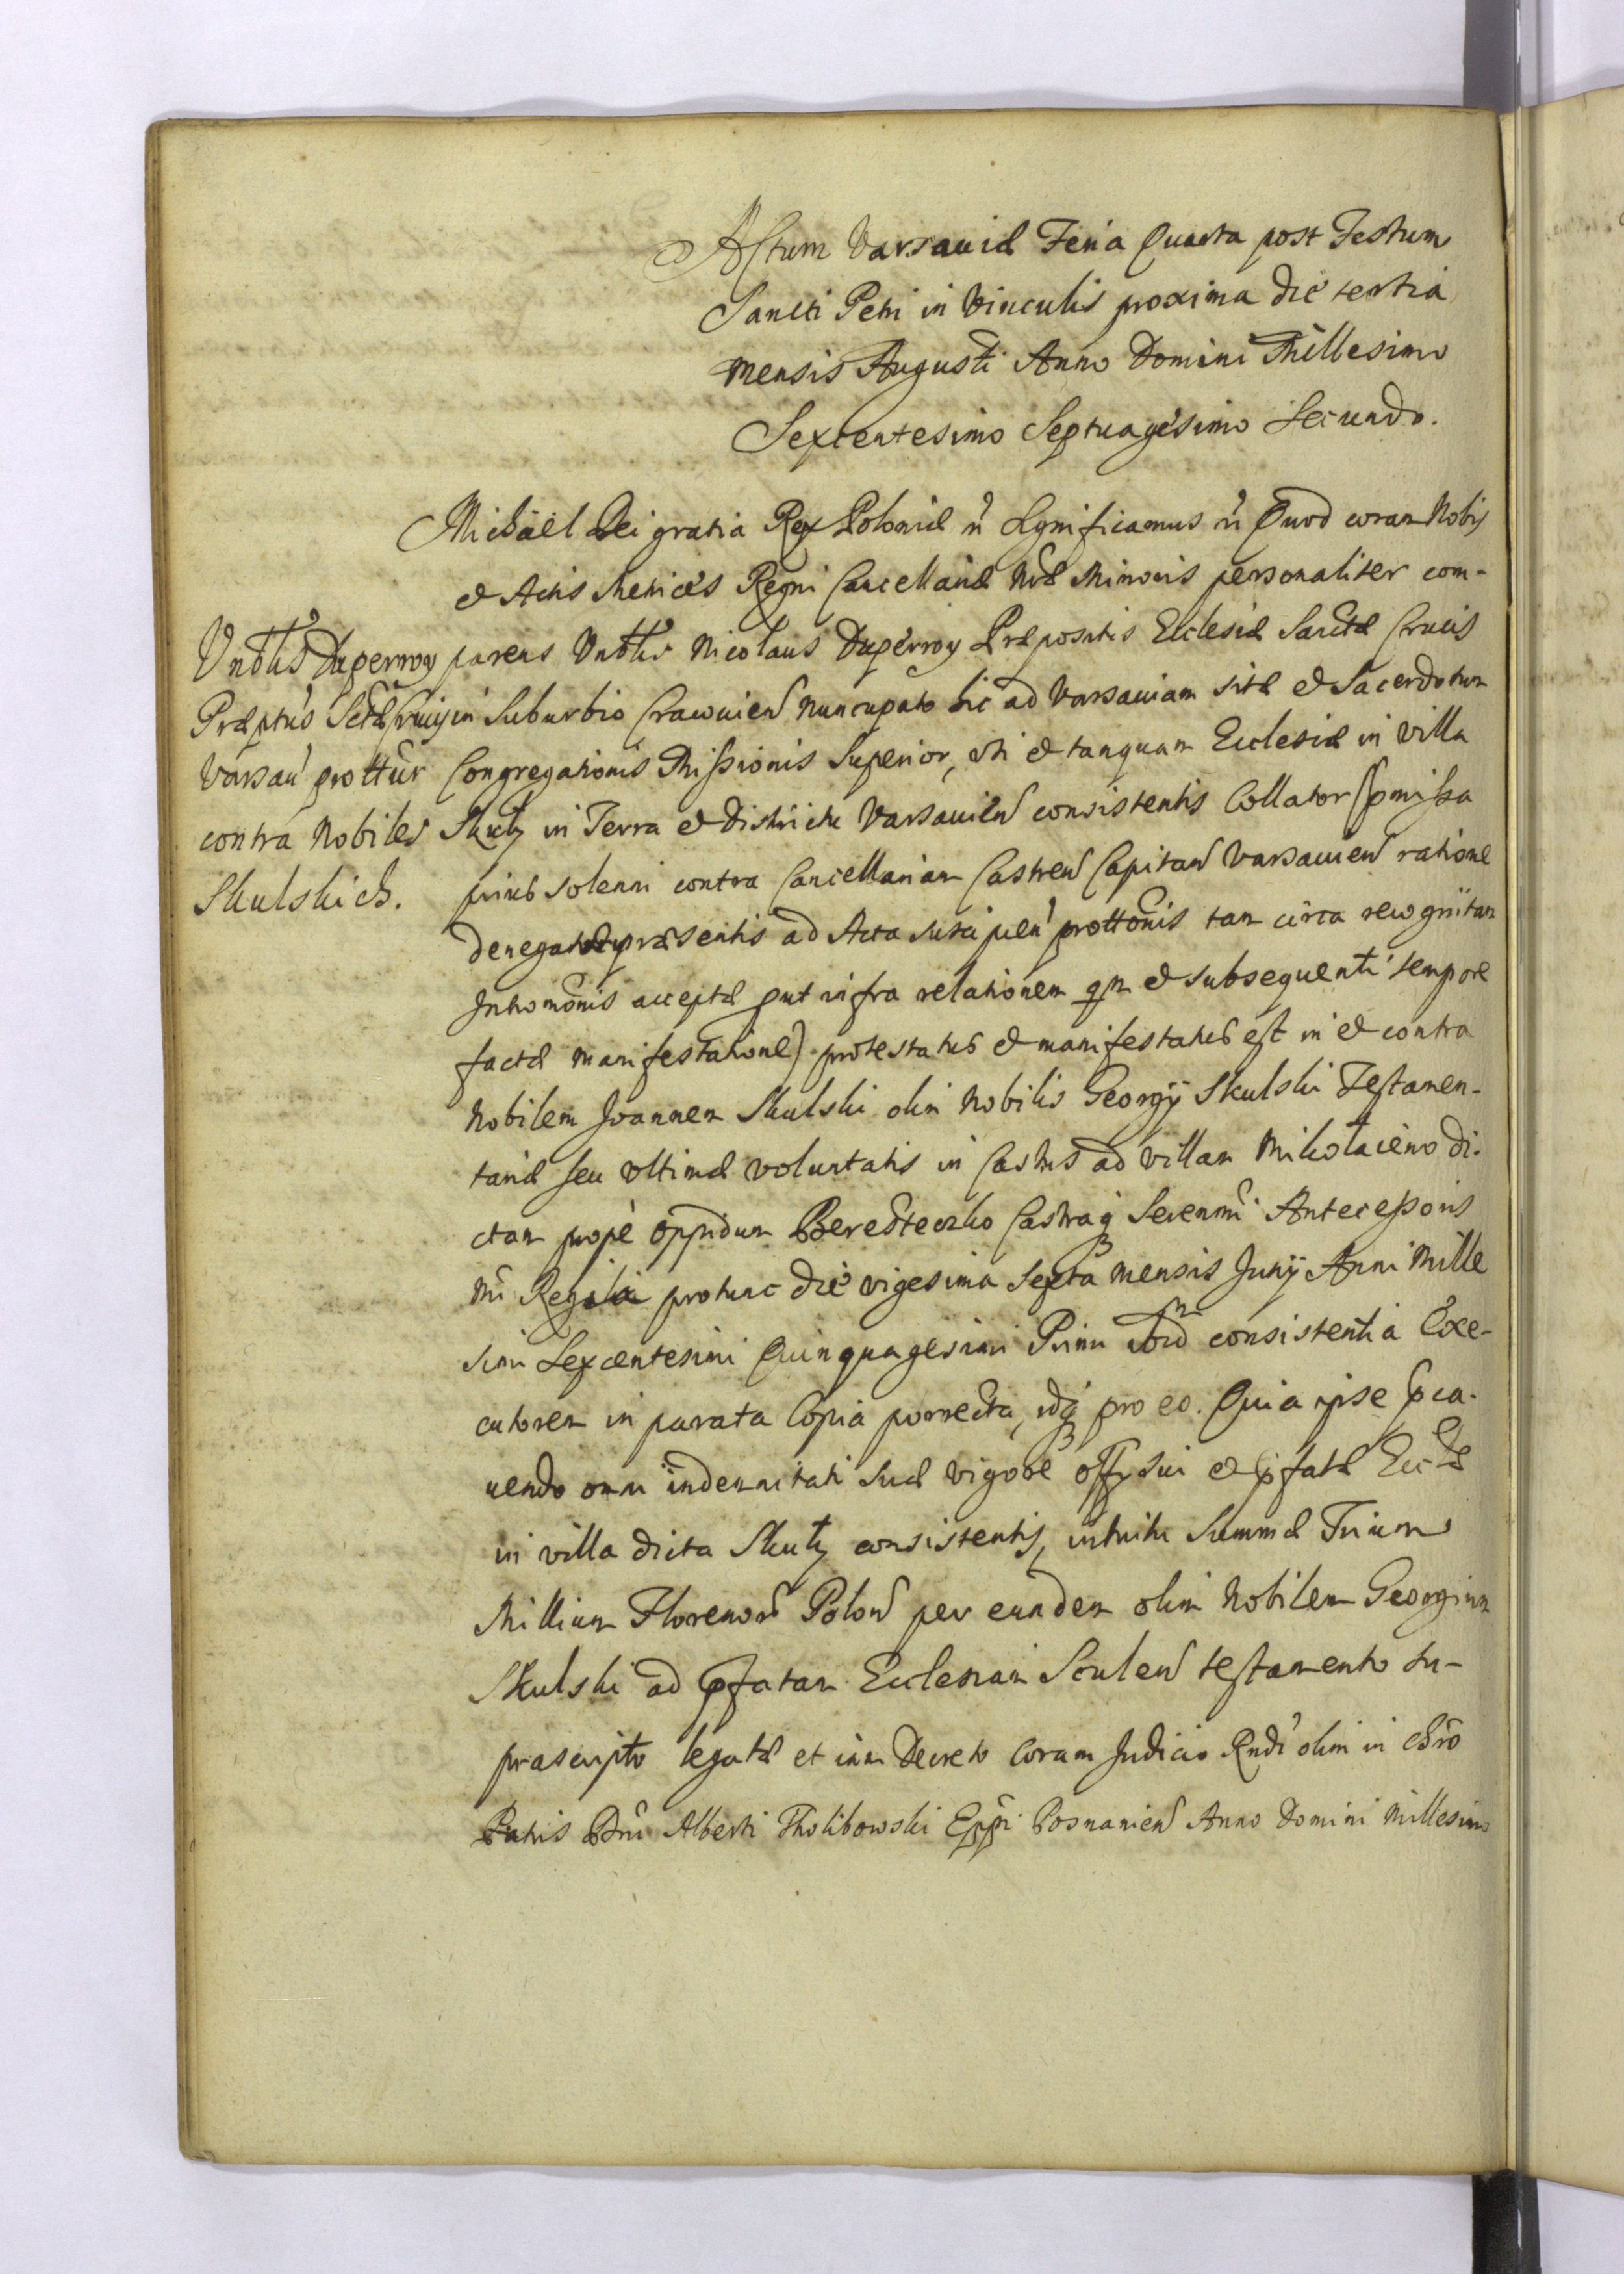 Actum Varsaviæ Feria Quarta post Festum
Sancti Petri in Vinculis proxima die tertia
mensis Augusti Anno Domini Millesimo
Sexcentesimo Septuagesimo Secundo.
Michaël Dei gratia Rex Poloniæ Significamus Quod coram Nobis
et Actis Metrices Regni Cancellariæ Nræ Minoris personaliter com-
parens Vnblis Nicolaus Duperroy Præpositus Ecclesiæ Sanctæ Crucis
in Suburbio Cracovien nuncupato hic ad Varsaviam sitæ et Sacerdotum
Congregationis Missionis Superior, uti et tanquam Ecclesiæ in villa
Skuły in Terra et districtu Varsavien consistentis Collator (pmissa
prius solenni contra Cancellariam Castren Capitan Varsavien ratione
denegatæ præsentis ad Acta suscipien prottonis tam circa recognitam
Intromonis acceptæ put infra relationem qm et subsequenti tempore
factæ manifestatione) protestatus et manifestatus est in et contra
Nobilem Joannem Skulski olim Nobilis Georgij Skulski Testamen-
tariæ seu vltimæ voluntatis in Castris ad villam Mikołaiewo di-
ctam prope oppidum Beresteczko Castraq Serenmi Antecessoris
Nri Regia protunc die vigesima Sexta mensis Junij Anni Mille
simi Sexcentesimi Quinquagesimi Primi consistentia Exe-
cutorem in parata Copia porrecta, idq pro eo. Quia ipse pca-
uendo omni indemnitati suæ vigore offy sui et pfatæ Eccl
in villa dicta Skuły consistentis, intuitu Summæ Trium
Millium Florenor Polon per eundem olim Nobilem Georgium
Skulski ad pfatam Ecclesiam Sculen testamento su-
prascripto legatæ et iam Decreto coram Judicio Rndi olim in Chro
Patris Dni Alberti Tholibowski Eppi Posnanien Anno Domini Millesimo
Vnblis Duperroy
Præptus Sctæ Crucis
Varsav prottur
contra Nobiles
Skulskich.